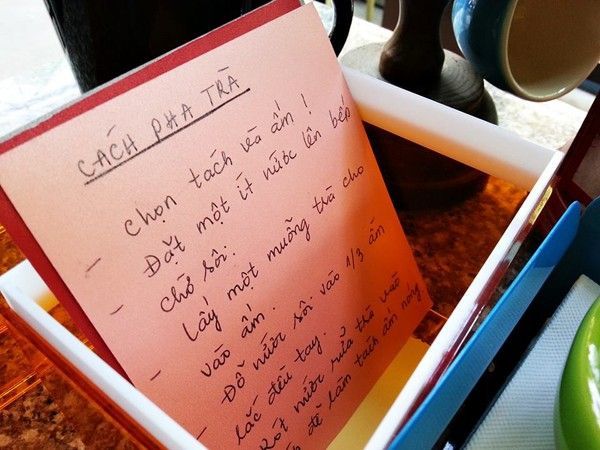 CÁCH PHA TRÀ
chọn tách và ấm !
- Đặt một ít nước lên bếp
chờ sôi.
- Lấy một muỗng trà cho
vào ấm.
- Đổ nước sôi vào 1/3 ấm
lắc đều tay.
- Rót nước rửa trà vào
để làm tách ấm nóng